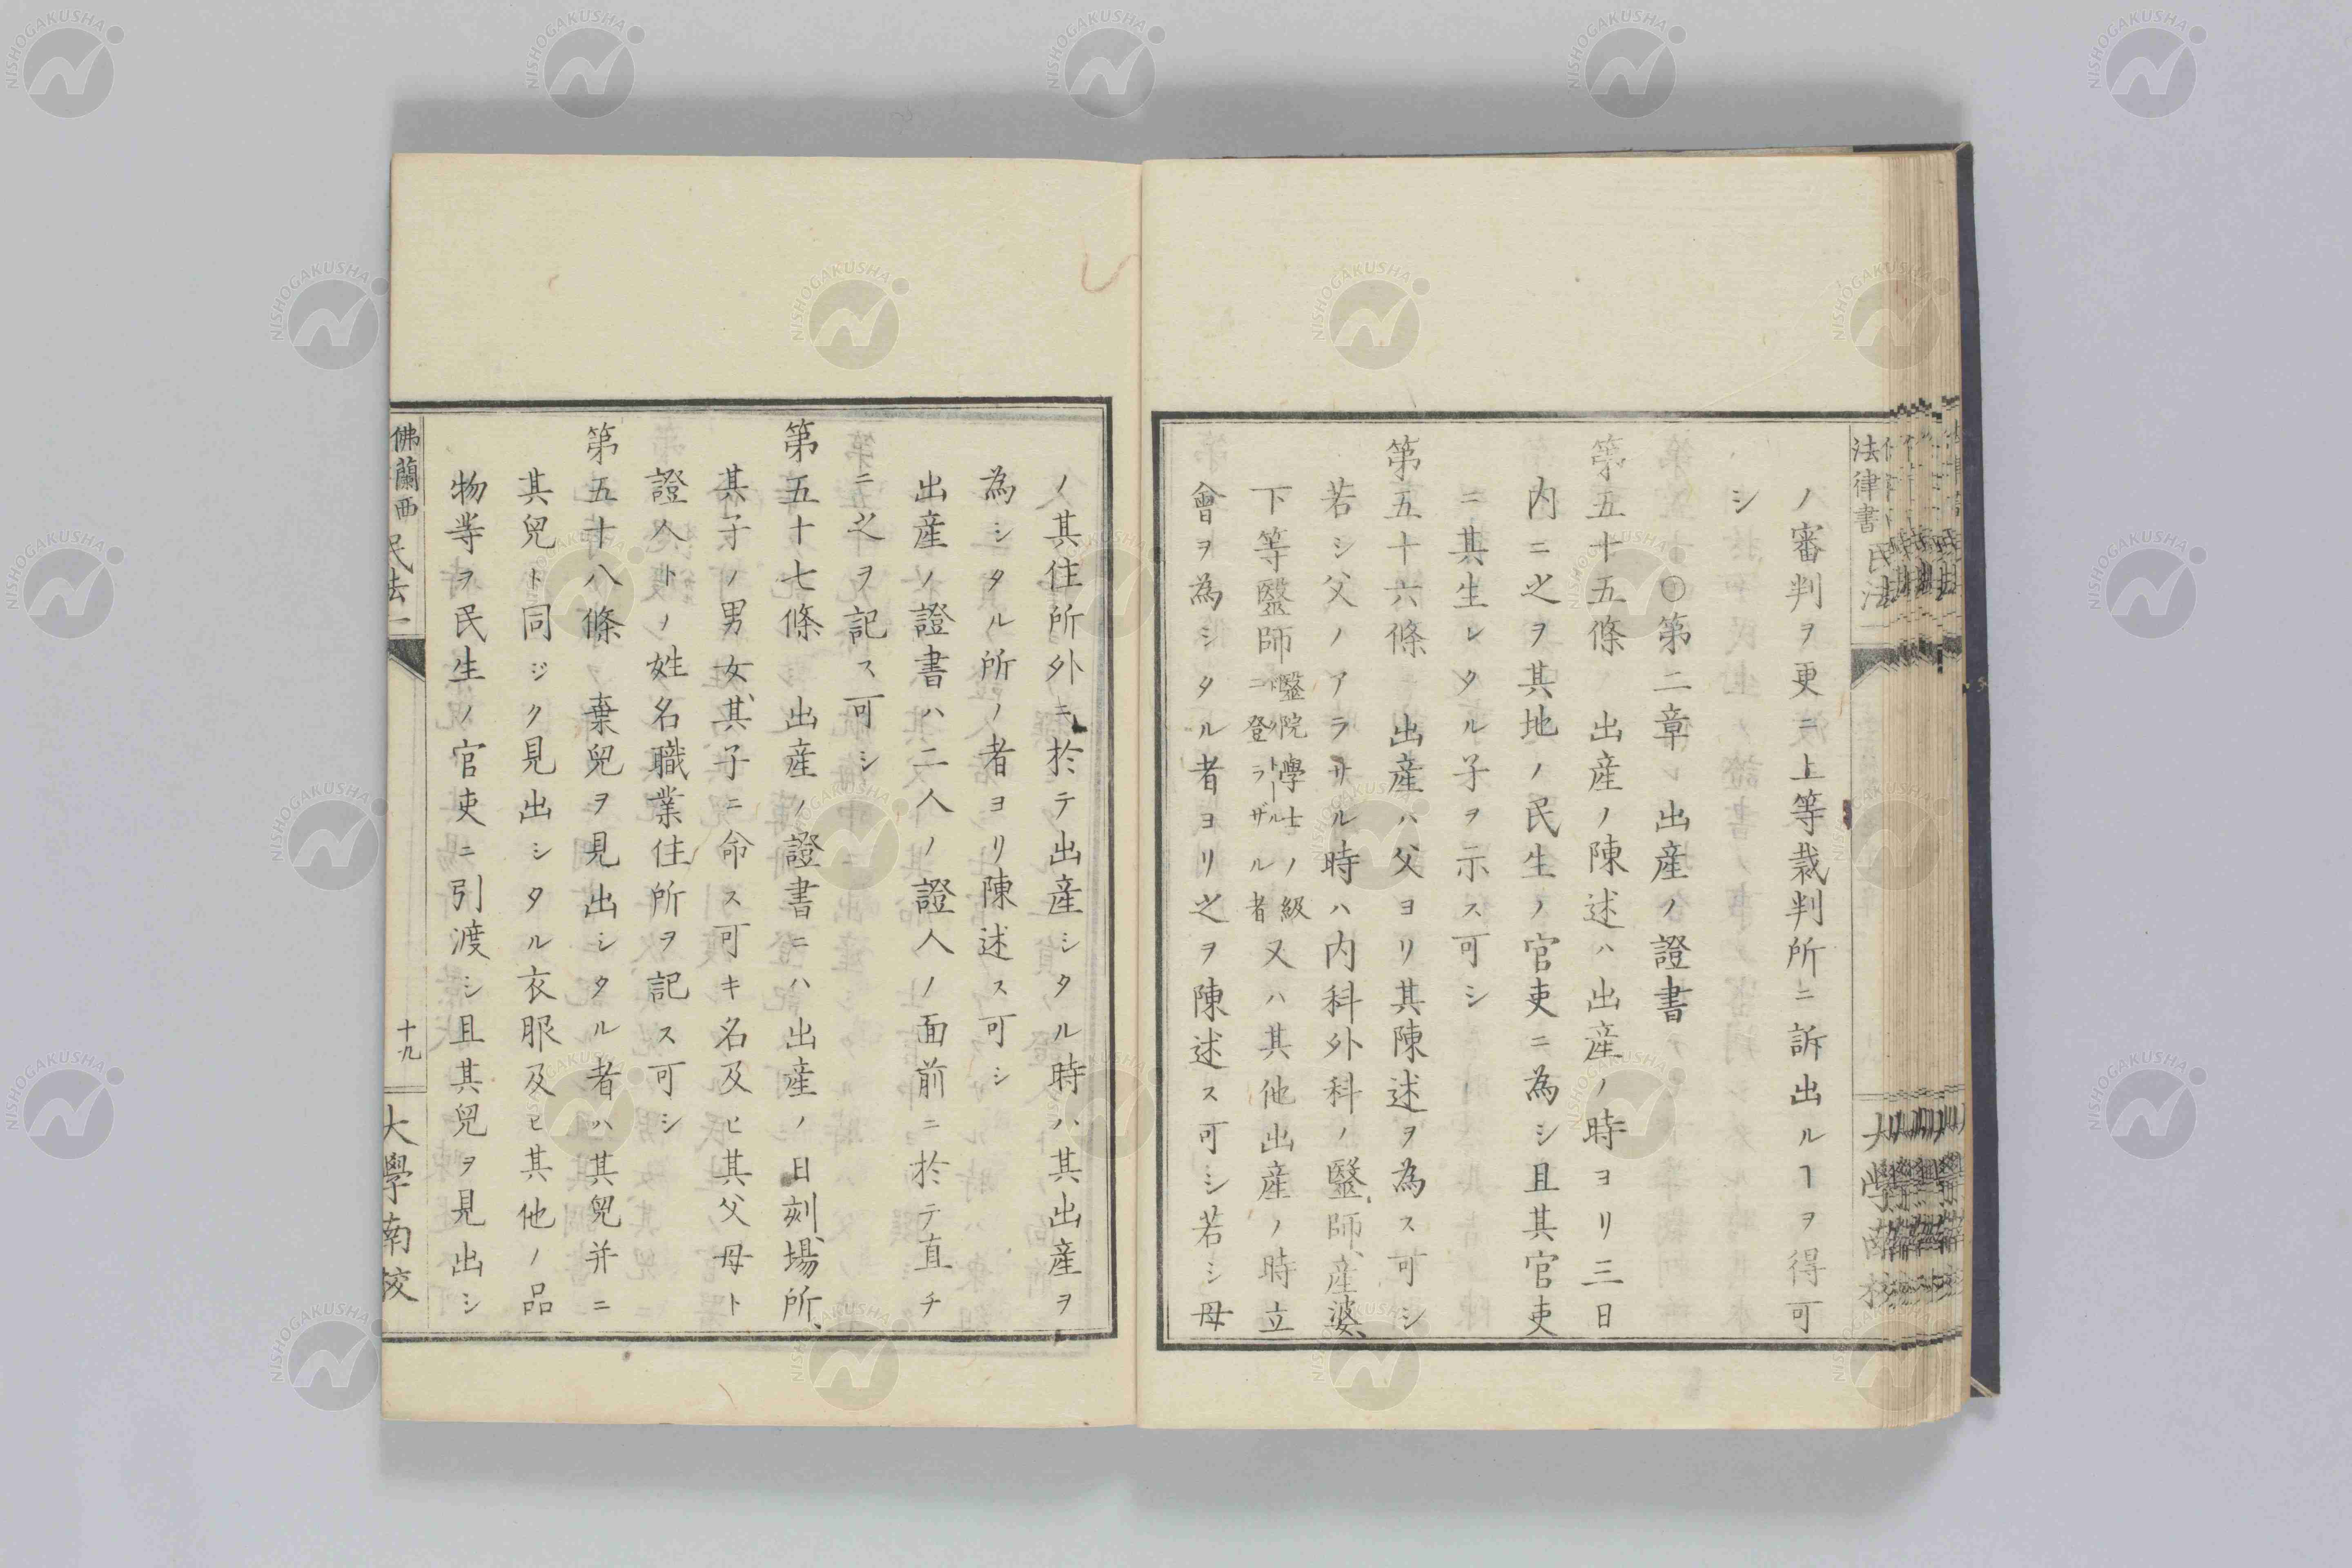 法律書 民法
ノ審判ヲ更ニ上等裁判所ニ訴出ルヿヲ得可
シ
〇第二章 出産ノ證書
第五十五條 出産ノ陳述ハ出産ノ時ヨリ三日
内ニ之ヲ其地ノ民生ノ官吏ニ為シ且其官吏
ニ其生レタル子ヲ示ス可シ
第五十六條 出産ハ父ヨリ其陳述ヲ為ス可シ
若シ父ノアラサル時ハ内科外科ノ醫師、産婆、
下等醫師醫院學士ノ級ニ登ラザル者又ハ其他出産ノ時立
會ヲ為シタル者ヨリ之ヲ陳述ス可シ若シ母
ノ其住所外ニ於テ出産シタル時ハ其出産ヲ
為シタル所ノ者ヨリ陳述ス可シ
出産ノ證書ハ二人ノ證人ノ面前ニ於テ直チ
ニ之ヲ記ス可シ
第五十七條 出産ノ證書ニハ出産ノ日刻、場所、
其子ノ男女、其子ニ命ス可キ名及ヒ其父母ト
證人トノ姓名職業住所ヲ記ス可シ
第五十八條 棄兒ヲ見出シタル者ハ其兒并ニ
其兒ト同ジク見出シタル衣服及ヒ其他ノ品
物等ヲ民生ノ官吏ニ引渡シ且其兒ヲ見出シ
佛蘭西 民法一 十九 大學南校
NISHOGAKUSHA